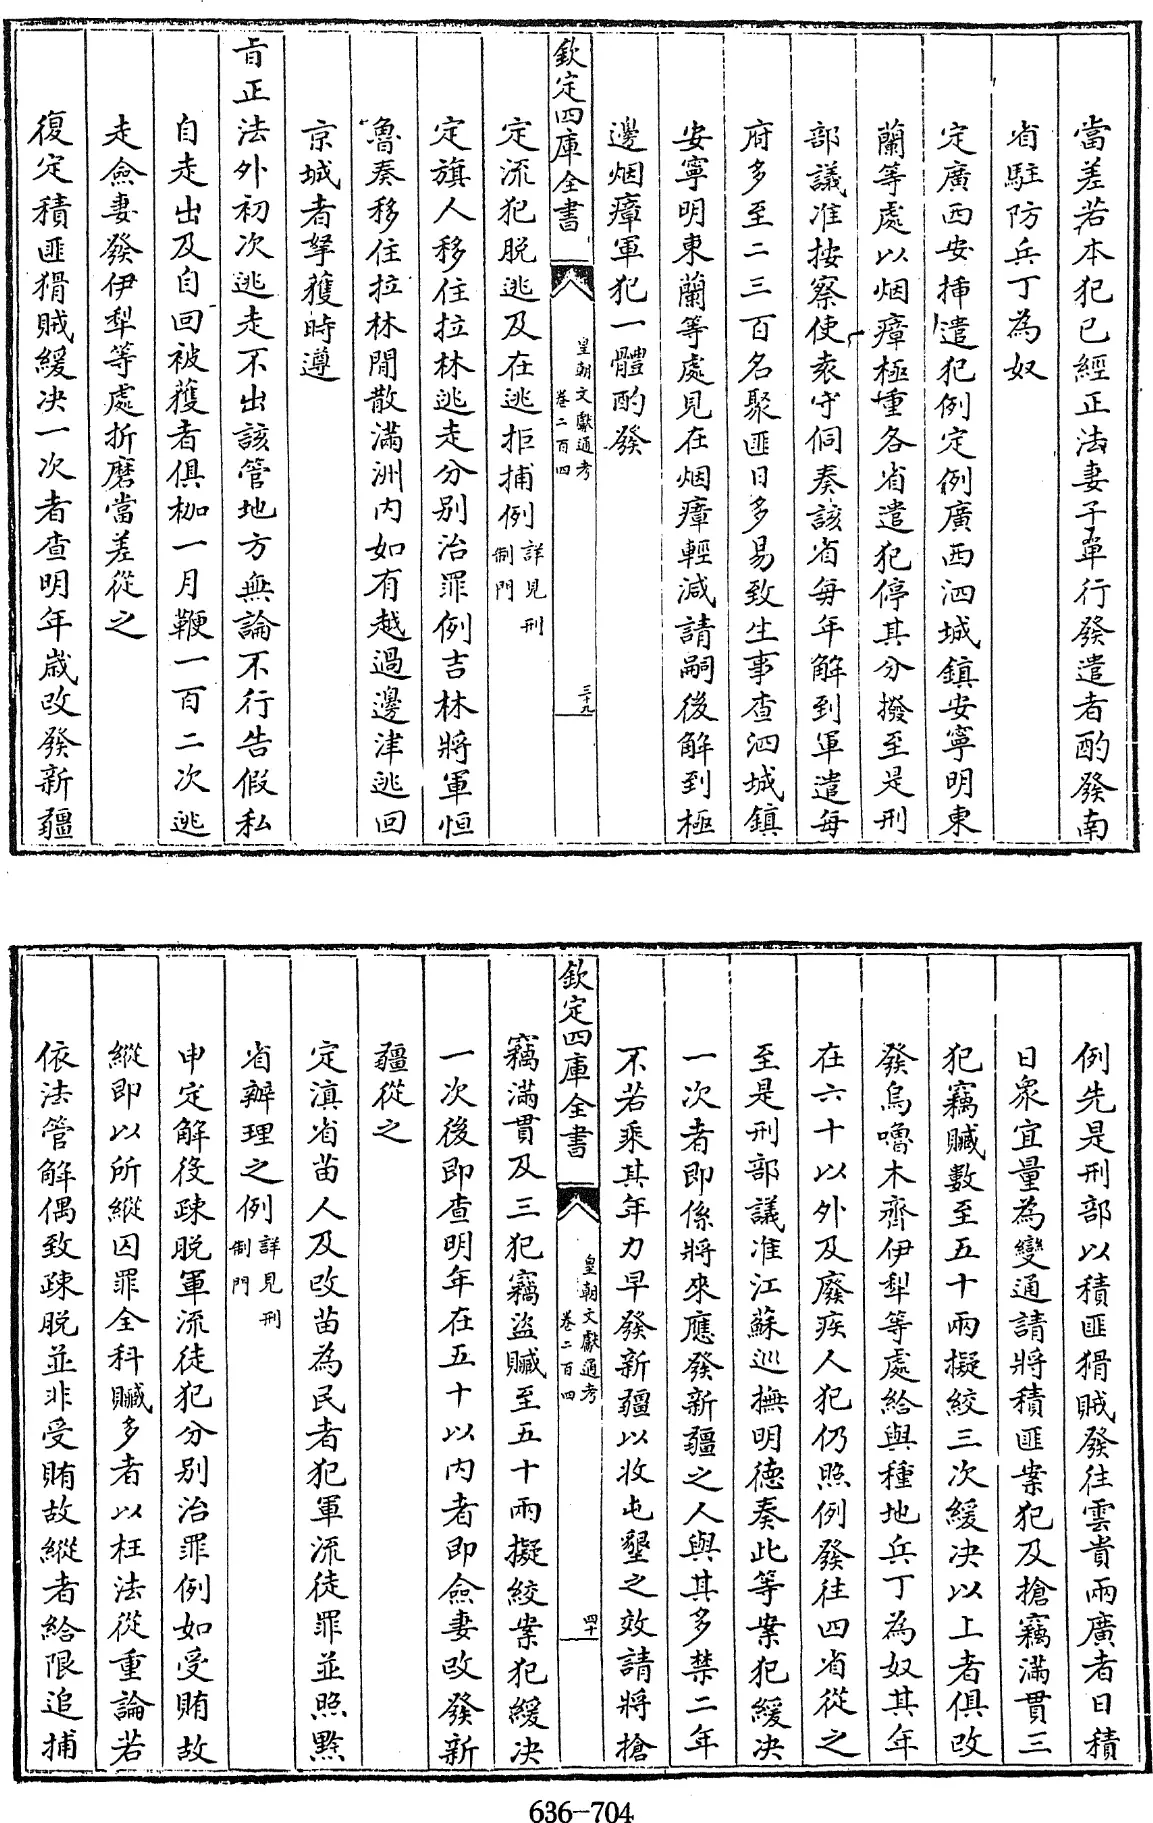 當差若本犯已經正法妻子單行發遣者酌發南
省駐防兵丁為奴
定廣西安揷遣犯例定例廣西泗城鎮安寧明東
蘭等處以烟瘴極重各省遣犯停其分撥至是刑
部議准按察使袁守侗奏該省每年解到軍遣每
府多至二三百名聚匪日多易致生事查泗城鎮
安寧明東蘭等處見在烟瘴輕減請嗣後解到極
邊烟瘴軍犯一體酌發
欽定四庫全書
皇朝文獻通考
卷二百四
三十九
定流犯脱逃及在逃拒捕例詳見刑制門
定旗人移住拉林逃走分别治罪例吉林將軍恒
魯奏移住拉林閒散滿洲内如有越過邊津逃回
京城者拏獲時遵
㫖正法外初次逃走不出該管地方無論不行告假私
自走出及自回被獲者俱枷一月鞭一百二次逃
走僉妻發伊犂等處折磨當差從之
復定積匪猾賊緩决一次者查明年歲改發新疆
例先是刑部以積匪猾賊發往雲貴兩廣者日積
日衆宜量為變通請將積匪案犯及搶竊滿貫三
犯竊贓數至五十兩擬絞三次緩决以上者俱改
發烏嚕木齊伊犂等處給與種地兵丁為奴其年
在六十以外及廢疾人犯仍照例發往四省從之
至是刑部議准江蘇巡撫明德奏此等案犯緩决
一次者即係將來應發新疆之人與其多禁二年
不若乘其年力早發新疆以收屯墾之效請將搶
欽定四庫全書
皇朝文獻通考
卷二百四
四十
竊滿貫及三犯竊盜贓至五十兩擬絞案犯緩决
一次後即查明年在五十以内者即僉妻改發新
疆從之
定滇省苗人及改苗為民者犯軍流徒罪並照黔
省辦理之例詳見刑制門
申定解役疎脱軍流徒犯分别治罪例如受賄故
縱即以所縱囚罪全科贓多者以枉法從重論若
依法管解偶致疎脱並非受賄故縱者給限追捕
636-704